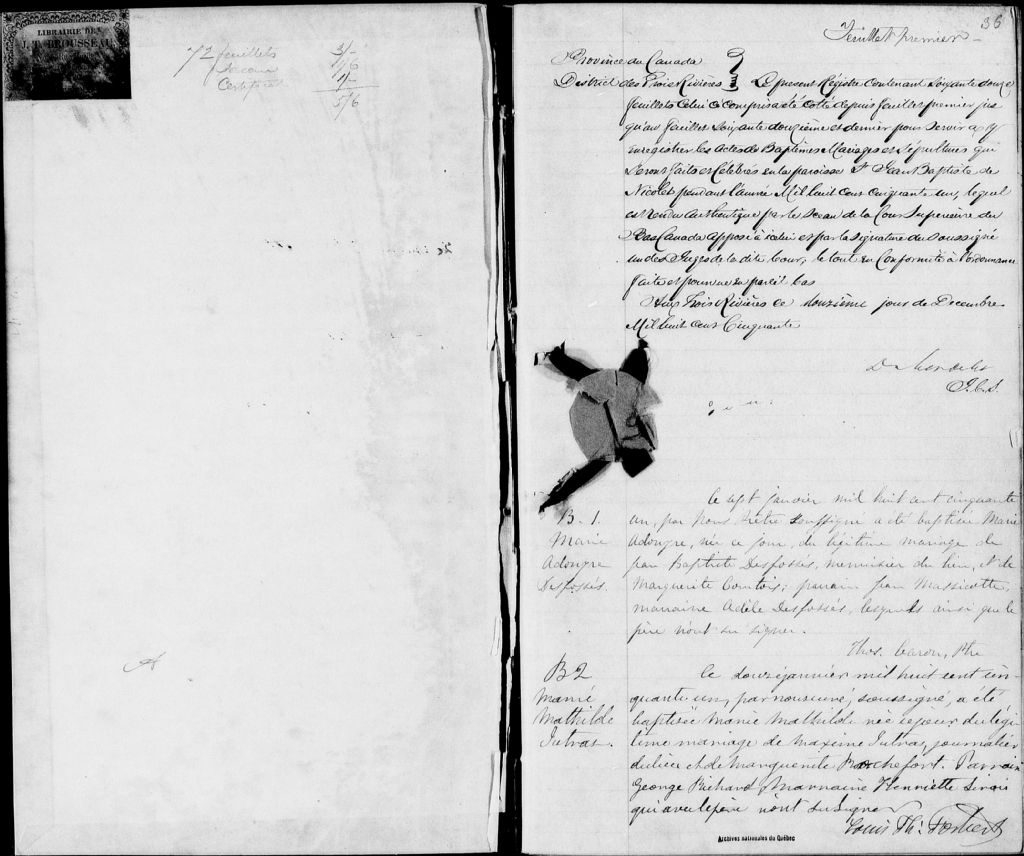 LIBRAIRIE DE
J. T. BROUSSEAU
72 feuillets 3/-
Sceau 1/6
Certificat 1/-
5/6
36
Feuillet premier
Province du Canada
District des Trois Rivières Le présent Régistre contenant Soixante douze
feuillets celui ci compris a été cotté depuis feuillet premier jus
qu'au feuillet Soixante douzième et dernier pour servir à y
enregistrer les actes de Baptêmes Mariages et Sépultures qui
seront faits et célébrés en la paroisse St Jean Baptiste de
Nicolet pendant l'année Mil huit cent cinquante un, lequel
est rendu authentique par le Sceau de la Cour Supérieure du
Bas Canada apposé à icelui et par la signature du soussigné
un des Juges de la dite Cour; le tout en Conformité à l'ordonnance
faite et pourvue en pareil cas
Aux Trois Rivières ce douzième jour de Decembre
Mil huit cent Cinquante
J.C.S.
Ce sept janvier mil huit cent cinquante
B. 1. un, par Nous Prêtre soussigné a été baptisée Marie
Marie née ce jour, du légitime mariage de
Jean Baptiste Desfossés, menuisier du lieu, et de
Desfossés. Marguerite Comtois; parrain Jean Massicotte,
marraine Adèle Desfossés, lesquels ainsi que le
père n'ont su signer.
Thos. Caron, Ptre
B2 Ce douze janvier mil huit cent cin-
Marie quante un, par nous curé, soussigné, a été
Mathilde baptisée Marie Mathilde née ce jour du légi
Jutras. time mariage de Maxime Jutras, journalier
du lieu et de Marguerite Rochefort. Parrain
George Richard, Marraine Henriette Sirois
qui avec le père n'ont su signer
Louis Th. Fortier
Archives nationales du Québec
A